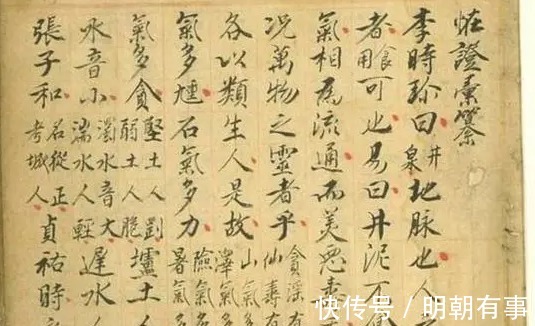 恠證彙纂
李時珍曰井泉地脉也人
者食用可也易曰井泥不
氣相為流通而美惡壽
况萬物之靈者乎貪淫有仙壽有
各以類生人是故山氣多澤氣
氣多尰石氣多力險氣多暑氣
氣多貪堅土人剛弱土人脆壚土人
水音小濁水音大湍水人輕遲水人
張子和名從正考城人貞祐時
快传号／明朝有事